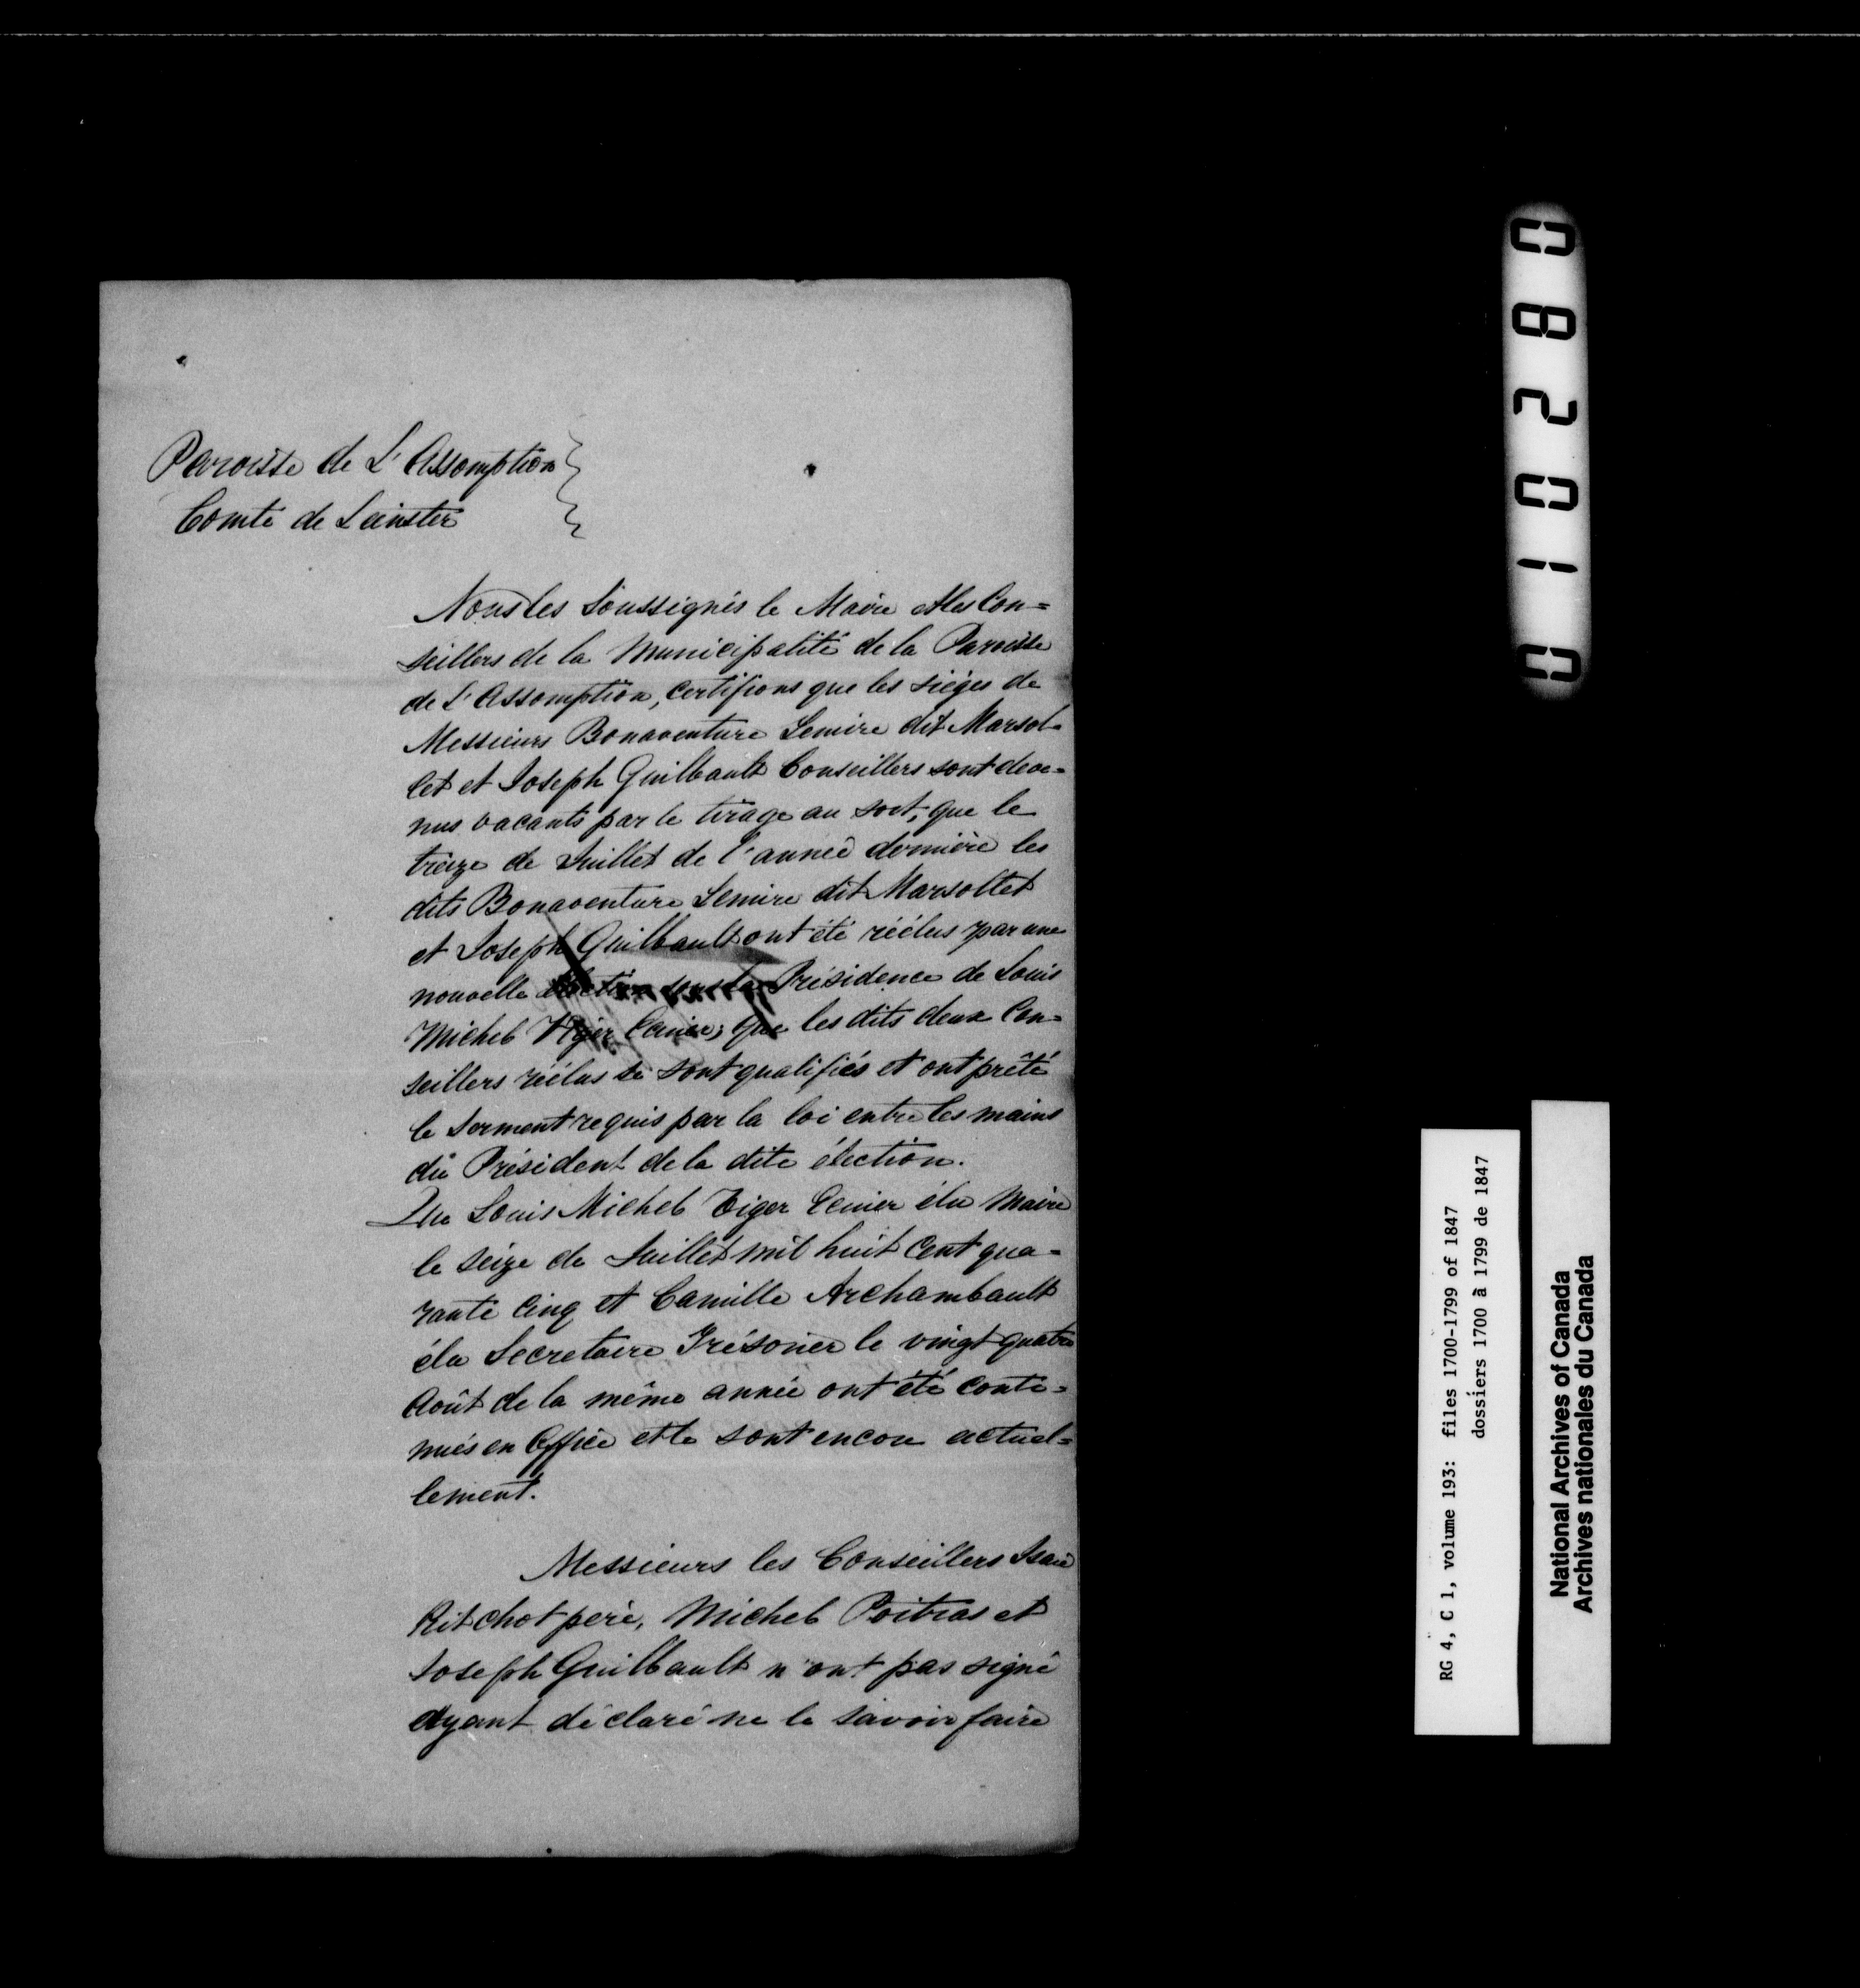 Paroisse de L'Assomption
Comté de Leinster
Nous les Soussignés le Maire et les Con=
seillers de la Municipalité de la Paroisse
de L'Assomption, certifions que les sièges de
Messieurs Bonaventure Lemire dit Marsol-
let et Joseph Guilbault Conseillers sont deve=
nus vacants par le tirage au sort, que le
treize de Juillet de l'année dernière les
dits Bonaventure Lemire dit Marsollet
et Joseph Guilbault ont été réélus par une
nouvelle élection sous la Présidence de Louis
Michel Viger Ecuier; que les dits deux Con=
seillers réélus se sont qualifiés et ont prêté
le serment requis par la loi entre les mains
du Président de la dite élection.
Que Louis Michel Viger Ecuier élu Maire
le seize de Juillet mil huit Cent qua=
rante Cinq et Camille Archambault
élu Secretaire Trésorier le vingt quatre
Août de la même année ont été conti=
nués en Office et le sont encore actuel=
lement.
Messieurs les Conseillers Isaïe
Ritchot père, Michel Poitras et
Joseph Guilbault n'ont pas signé
ayant déclaré ne le savoir faire
010280
RG 4, C 1, volume 193: files 1700-1799 of 1847
dossiers 1700 à 1799 de 1847
National Archives of Canada
Archives nationales du Canada